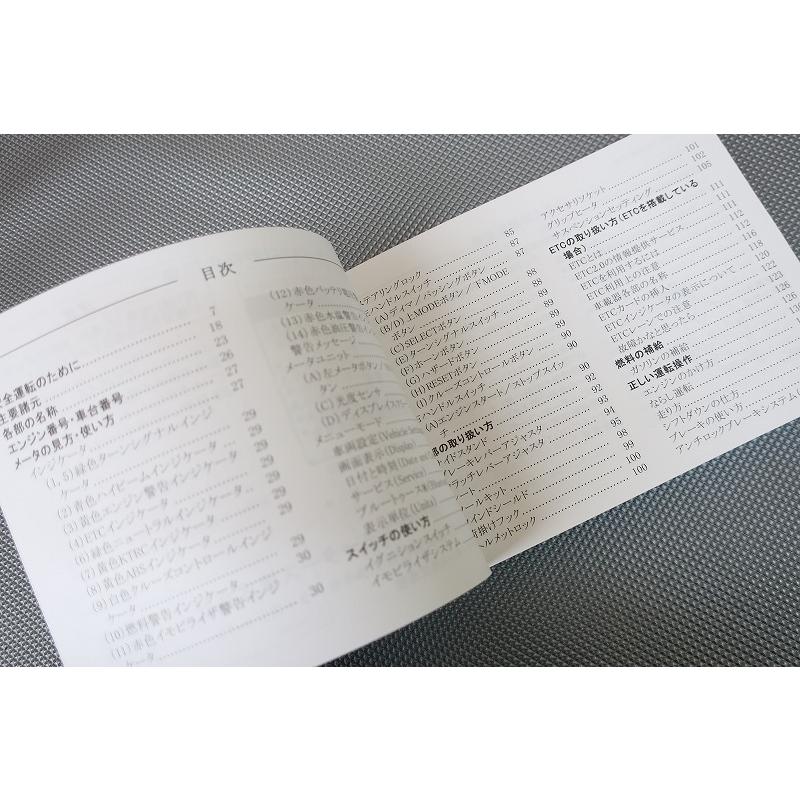 目次
全運転のために 7
主要諸元 18
各部の名称 23
エンジン番号・車台番号 26
メータの見方・使い方 27
インジケータ 29
(1, 5) 緑色ターンシグナルインジ
ケータ 29
(2) 青色ハイビームインジケータ 29
(3) 黄色エンジン警告インジケータ 29
(4) ETCインジケータ 29
(6) 緑色ニュートラルインジケータ 29
(7) 黄色KTRCインジケータ
(8) 黄色ABSインジケータ 29
(9) 白色クルーズコントロールインジ
ケータ 30
(10) 燃料警告インジケータ
(11) 赤色イモビライザ警告インジ 30
ケータ
(12) 赤色バッテリ
ケータ
(13) 赤色水温警告イン
(14) 赤色油圧警告イン
警告メッセージ
メータユニット
(A) 左メータボタン/
タン
(C) 光度センサ
(D) ディスプレイ
メニューモード
車両設定 (Vehicle
画面表示 (Display)
日付と時刻 (Date
サービス (Service)
ブルートゥース
表示単位 (Units)
スイッチの使い方
イグニションスイッチ
イモビライザシステム
テアリングロック 85
ハンドルスイッチ 87
(A) ディマ/パッシングボタン 87
(B/D) I-MODEボタン/F-MODE
ボタン 88
(C) SELECTボタン 88
(E) ターンシグナルスイッチ 89
(F) ホーンボタン 89
(G) ハザードボタン 89
(H) RESETボタン 90
(I) クルーズコントロールボタン 90
ハンドルスイッチ 90
(A) エンジンスタート/ストップスイッ
チ 90
部の取り扱い方 92
イドスタンド 92
レーキレバーアジャスタ 93
ラッチレバーアジャスタ 94
ート 95
ールキット 98
インドシールド 99
掛けフック 100
ヘルメットロック 100
アクセサリソケット 101
グリップヒータ 102
サスペンションセッティング 105
ETCの取り扱い方 (ETCを搭載している
場合) 111
ETCとは 111
ETC2.0の情報提供サービス 111
ETCを利用するには 112
ETC利用上の注意 112
車載器各部の名称 116
ETCカードの挿入 118
ETCインジケータの表示について 120
ETCレーンでの注意 122
故障かなと思ったら 123
燃料の補給 126
ガソリンの補給 126
正しい運転操作
エンジンのかけ方
ならし運転
走り方
シフトダウンの仕方
ブレーキの使い方
アンチロックブレーキシステム